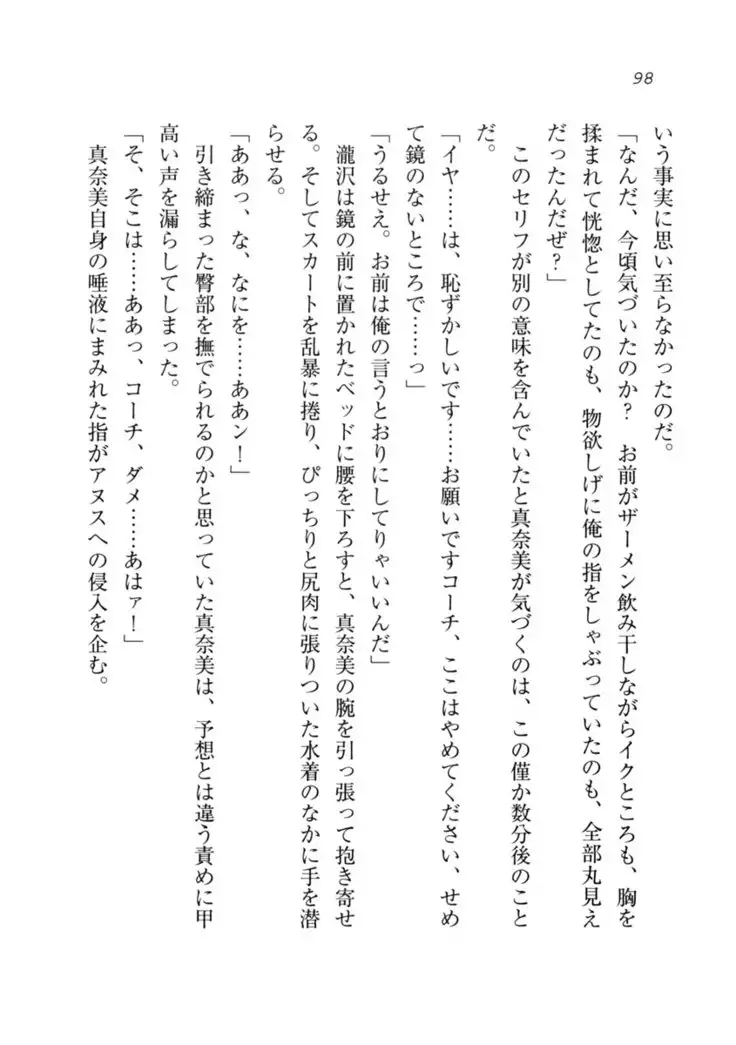 98
いう事実に思い至らなかったのだ。
「なんだ、今頃気づいたのか？　お前がザーメン飲み干しながらイクところも、胸を
揉まれて恍惚としてたのも、物欲しげに俺の指をしゃぶっていたのも、全部丸見え
だったんだぜ？」
このセリフが別の意味を含んでいたと真奈美が気づくのは、この僅か数分後のこと
だ。
「イヤ……は、恥ずかしいです……お願いですコーチ、ここはやめてください、せめ
て鏡のないところで……っ」
「うるせえ。お前は俺の言うとおりにしてりゃいいんだ」
瀧沢は鏡の前に置かれたベッドに腰を下ろすと、真奈美の腕を引っ張って抱き寄せ
る。そしてスカートを乱暴に捲り、ぴっちりと尻肉に張りついた水着のなかに手を潜
らせる。
「ああっ、な、なにを……ああン！」
引き締まった臀部を撫でられるのかと思っていた真奈美は、予想とは違う責めに甲
高い声を漏らしてしまった。
「そ、そこは……ああっ、コーチ、ダメ……あはァ！」
真奈美自身の唾液にまみれた指がアヌスへの侵入を企む。